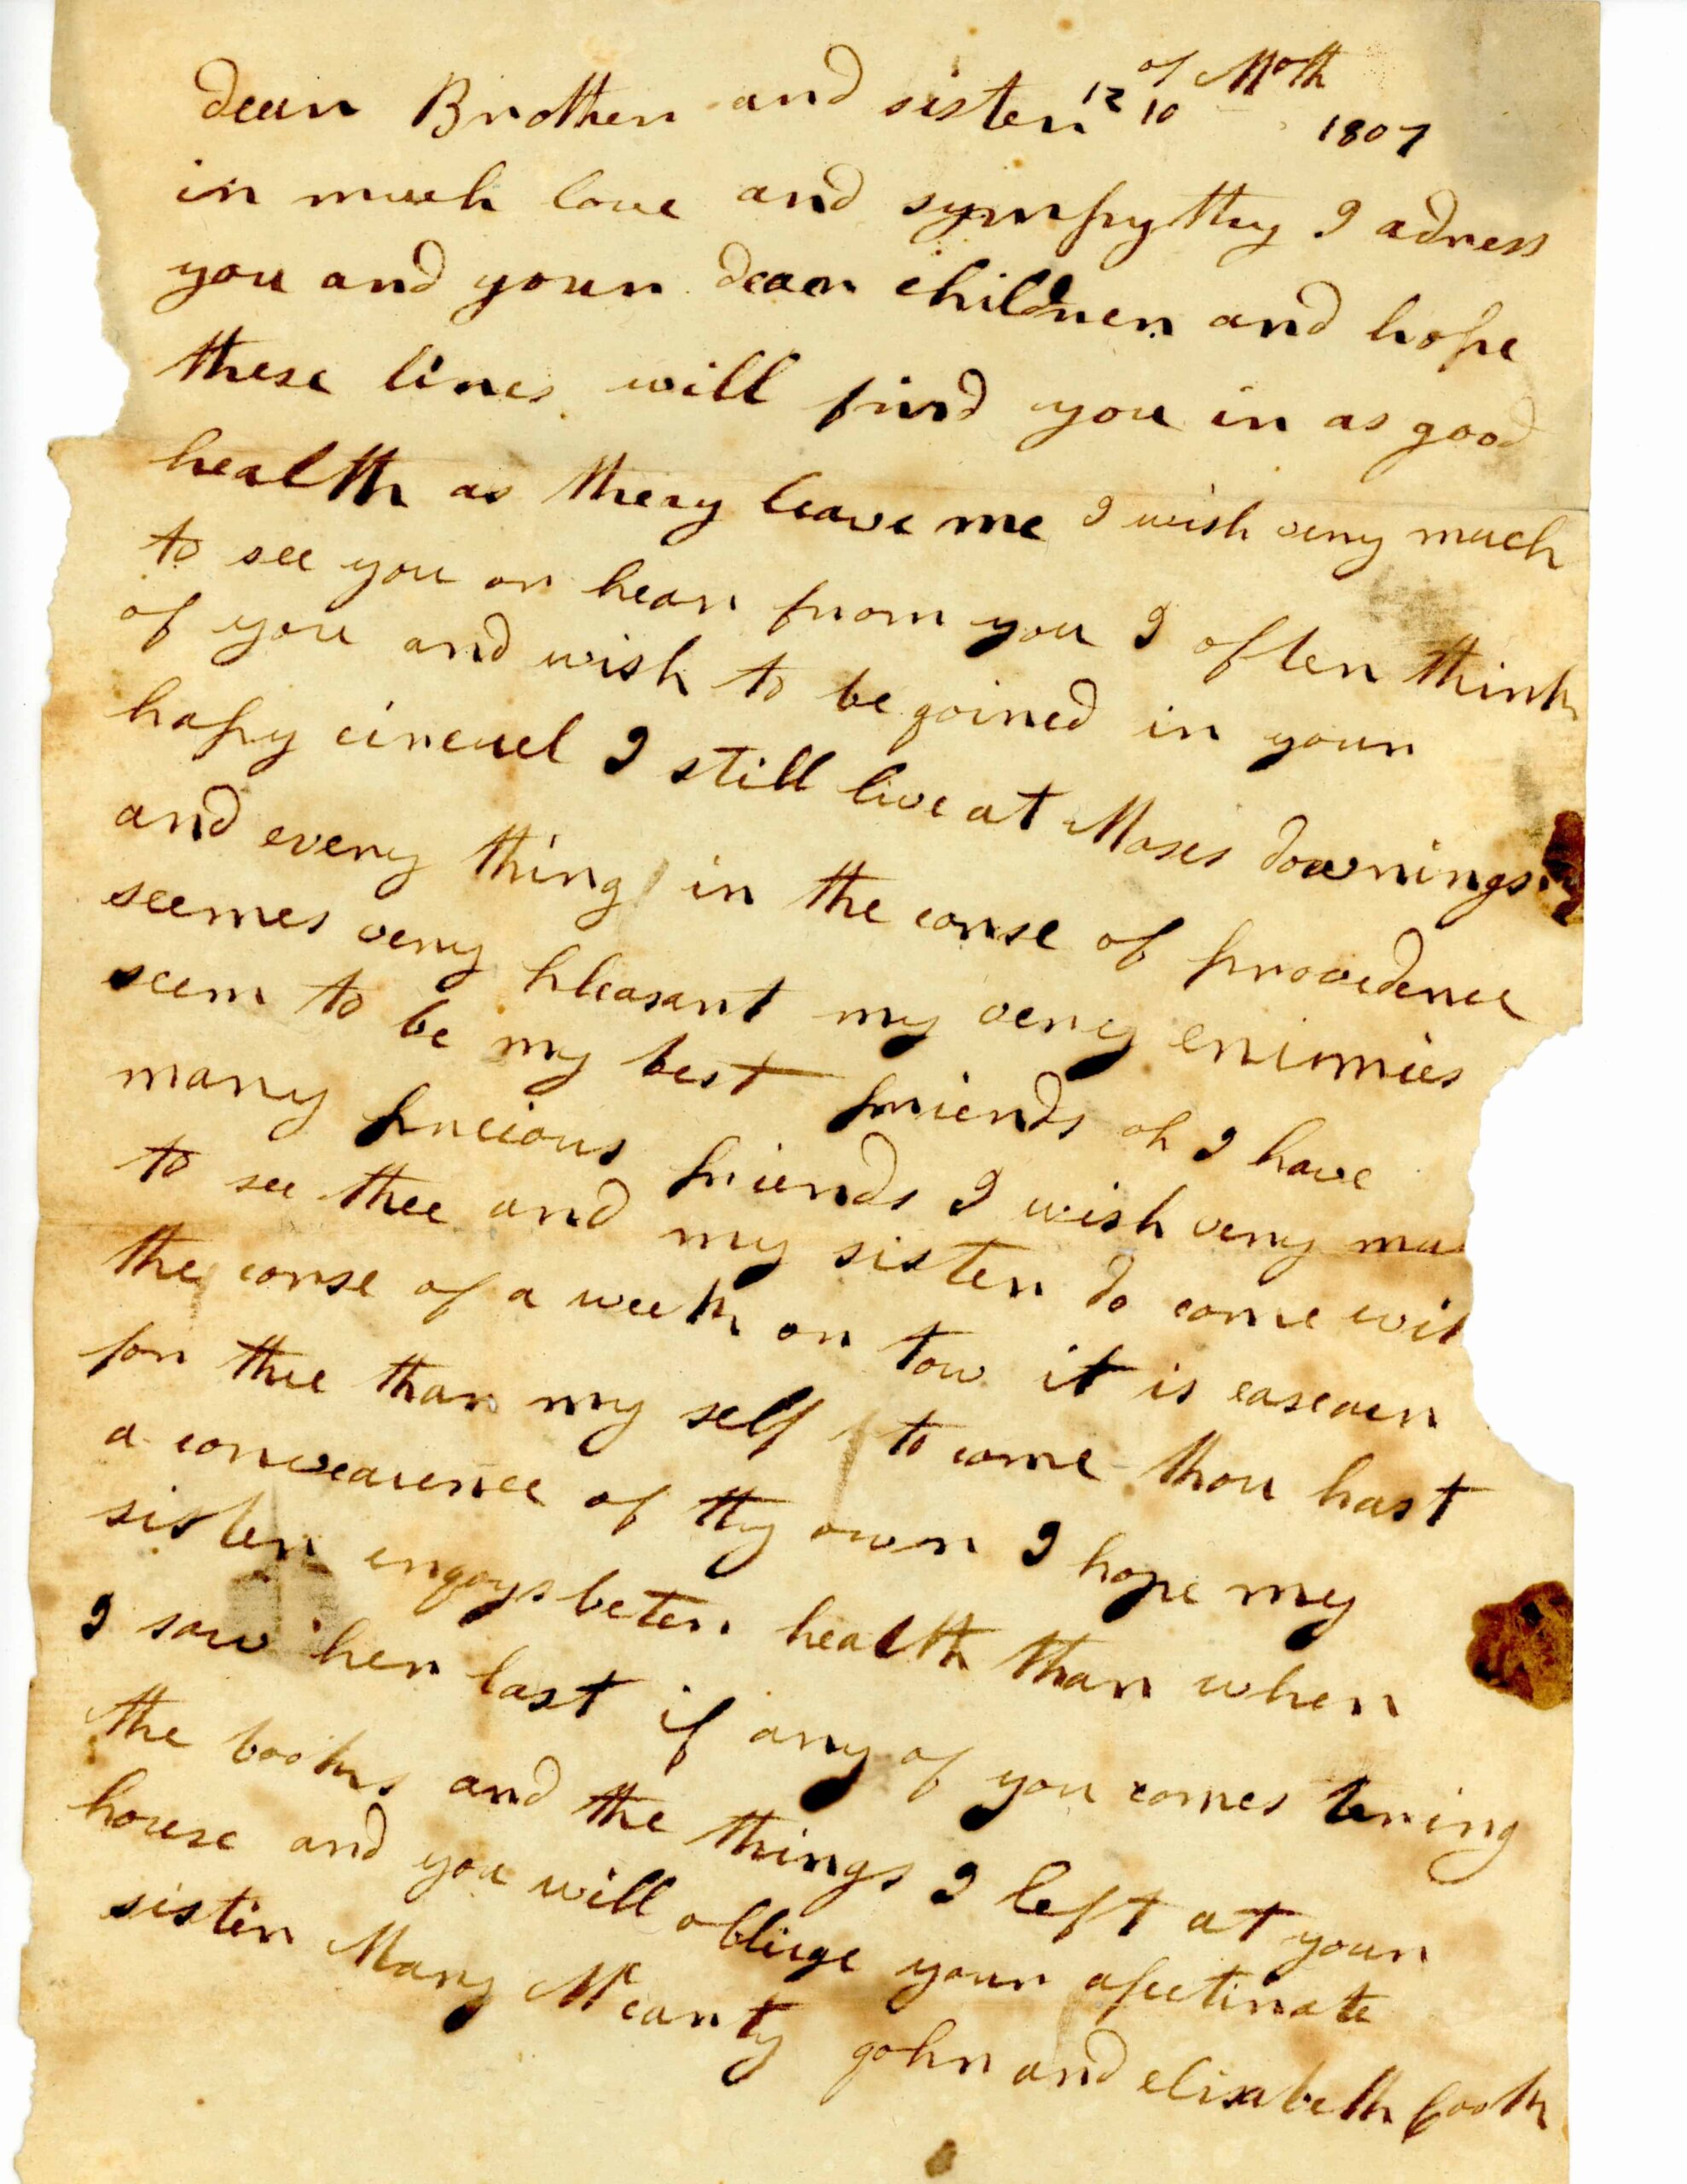 dear Brother and sister 12 of 10 Moth 1807
in much love and sympythy I adress
you and your dear children and hope
these lines will find you in as good
health as they leave me I wish very much
to see you or hear from you I often think
of you and wish to be goined in your
hapy circuel I still live at Moses downings
and every thing in the corse of provedence
seemes very pleasant my very enimies
seem to be my best friends oh I have
many precious friends I wish very mu
to see thee and my sister do come wit
the corse of a week or tow it is easeaer
for thee than my self to come thou hast
a conveaience of thy own I hope my
sister engoys beter health than when
I saw her last if any of you comes bring
the books and the things I left at your
house and you will obliege your afectinate
sister Mary Mccarty gohn and elisabeth